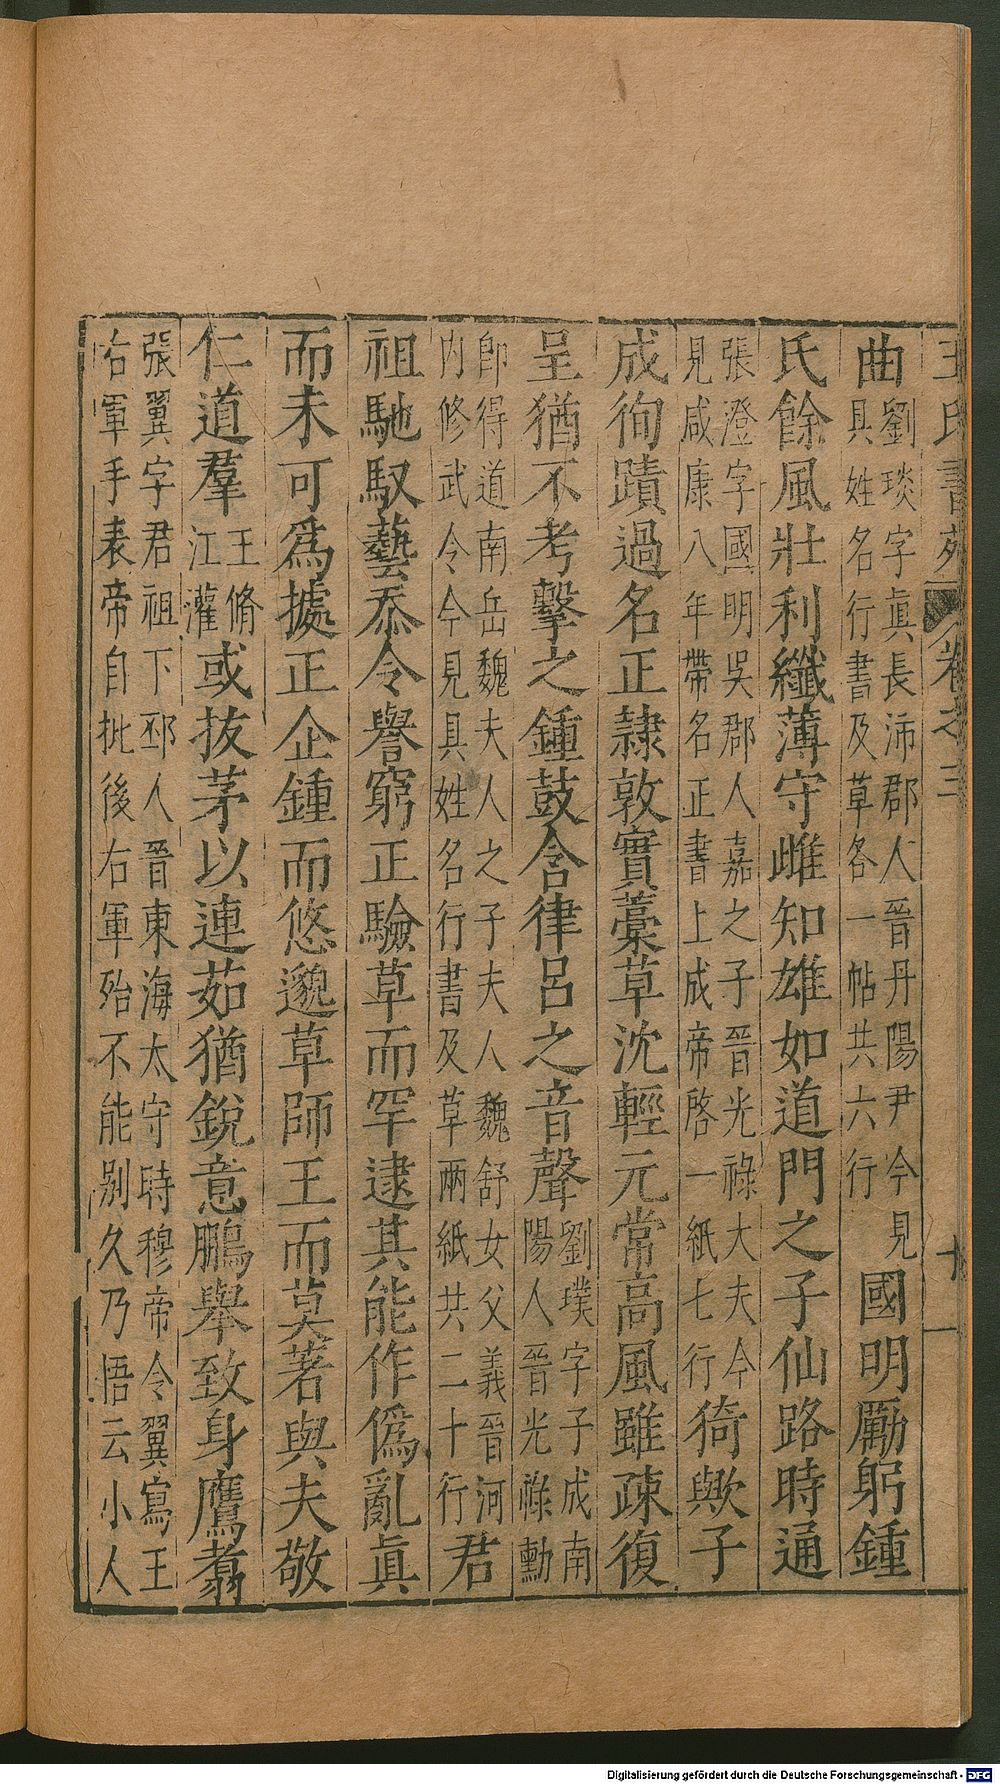 王氏書苑 卷之三 十一
曲劉琰字眞長沛郡人晉丹陽尹今見具姓名行書及草各一帖共六行國明勵躬鍾
氏餘風壯利纖薄守雌知雄如道門之子仙路時通
張澄字國明吳郡人嘉之子晉光祿大夫今見咸康八年帶名正書上成帝啓一紙七行猗歟子
成徇蹟過名正隷敦實藁草沈輕元常高風雖疎復
呈猶不考擊之鍾鼓含律呂之音聲劉璞字子成南陽人晉光祿勳
卽得道南岳魏夫人之子夫人魏舒女父義晉河內修武令今見具姓名行書及草兩紙共二十行君
祖馳馭藝忝令譽窮正驗草而罕逮其能作僞亂眞
而未可爲據正企鍾而悠邈草師王而莫著與夫敬
仁道羣王脩江灌或拔茅以連茹猶銳意鵬舉致身鷹翥
張翼字君祖下邳人晉東海太守時穆帝令翼寫王右軍手表帝自批後右軍殆不能別久乃悟云小人
Digitalisierung gefördert durch die Deutsche Forschungsgemeinschaft - DFG